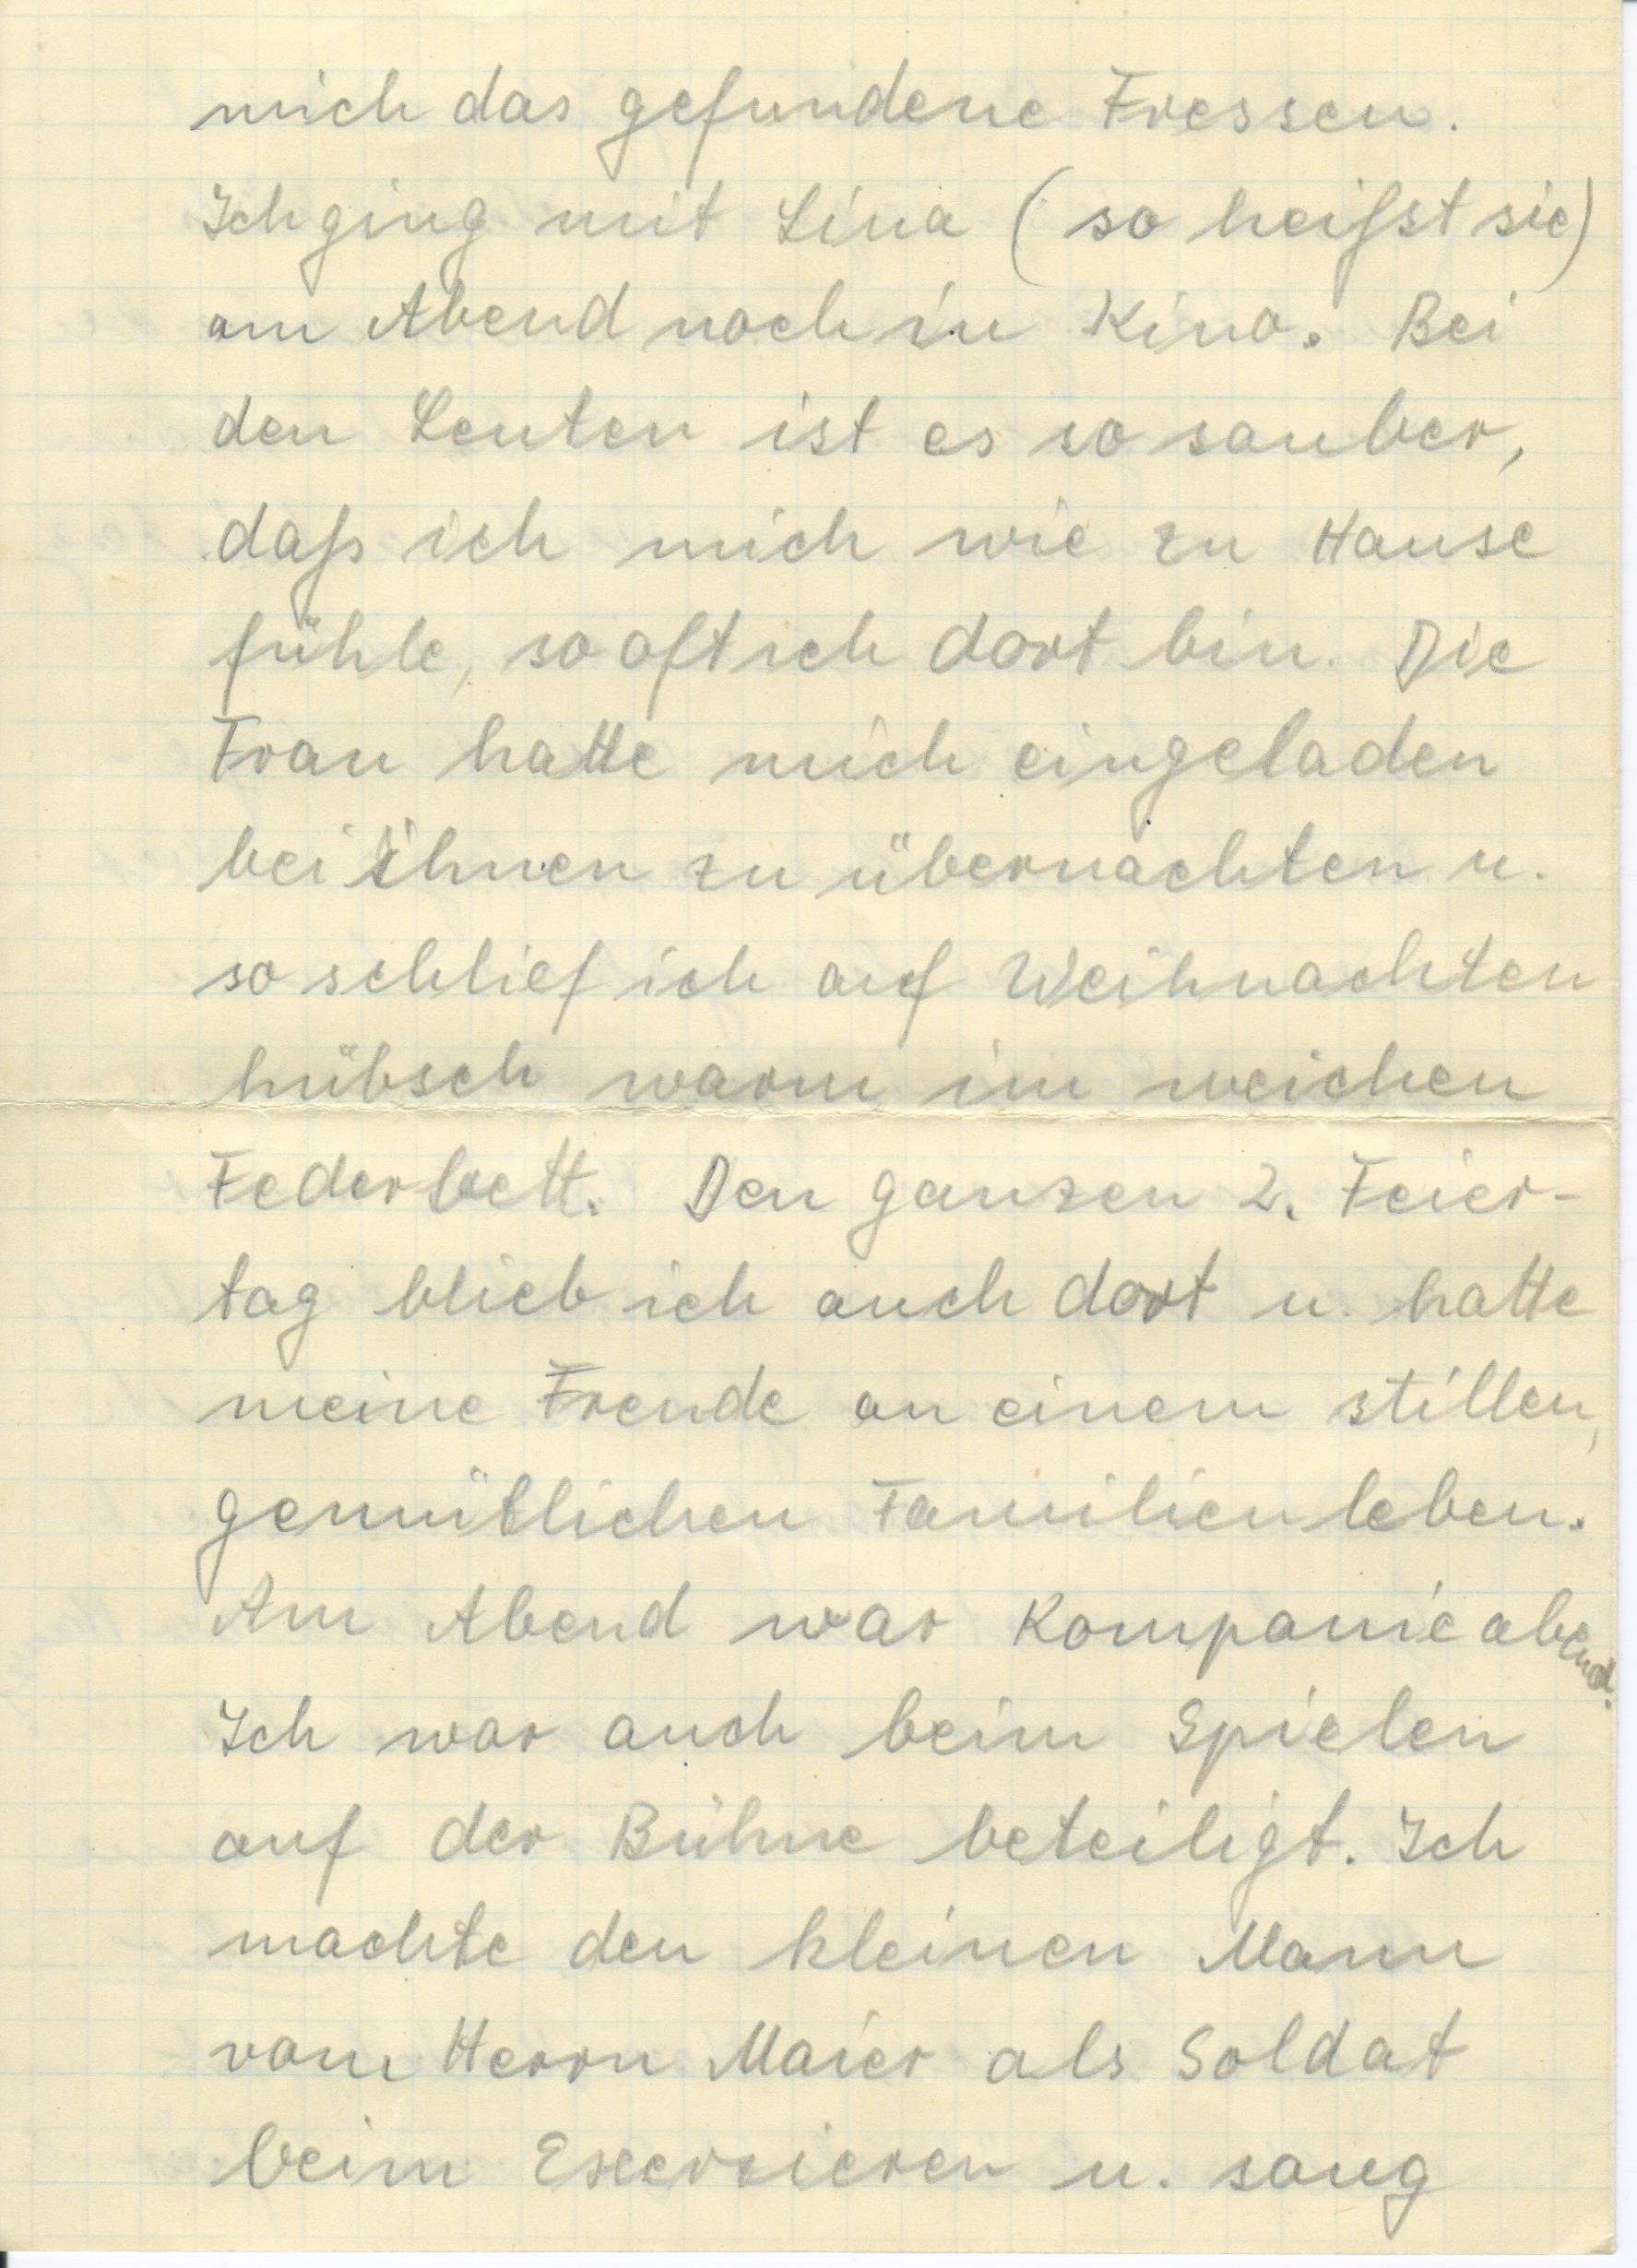 mich das gefundene Fressen.
Ich ging mit Lina (so heißt sie)
am Abend noch in Kino. Bei
den Leuten ist es so sauber,
daß ich mich wie zu Hause
fühle, so oft ich dort bin. Die
Frau hatte mich eingeladen
bei ihnen zu übernachten u.
so schlief ich auf Weihnachten
hübsch warm im weichen
Federbett. Den ganzen 2. Feier-
tag blieb ich auch dort u. hatte
meine Freude an einem stillen,
gemütlichen Familienleben.
Am Abend war Kompanieabend.
Ich war auch beim Spielen
auf der Bühne beteiligt. Ich
machte den kleinen Mann
vom Herrn Maier als Soldat
beim Exerzieren u. sang